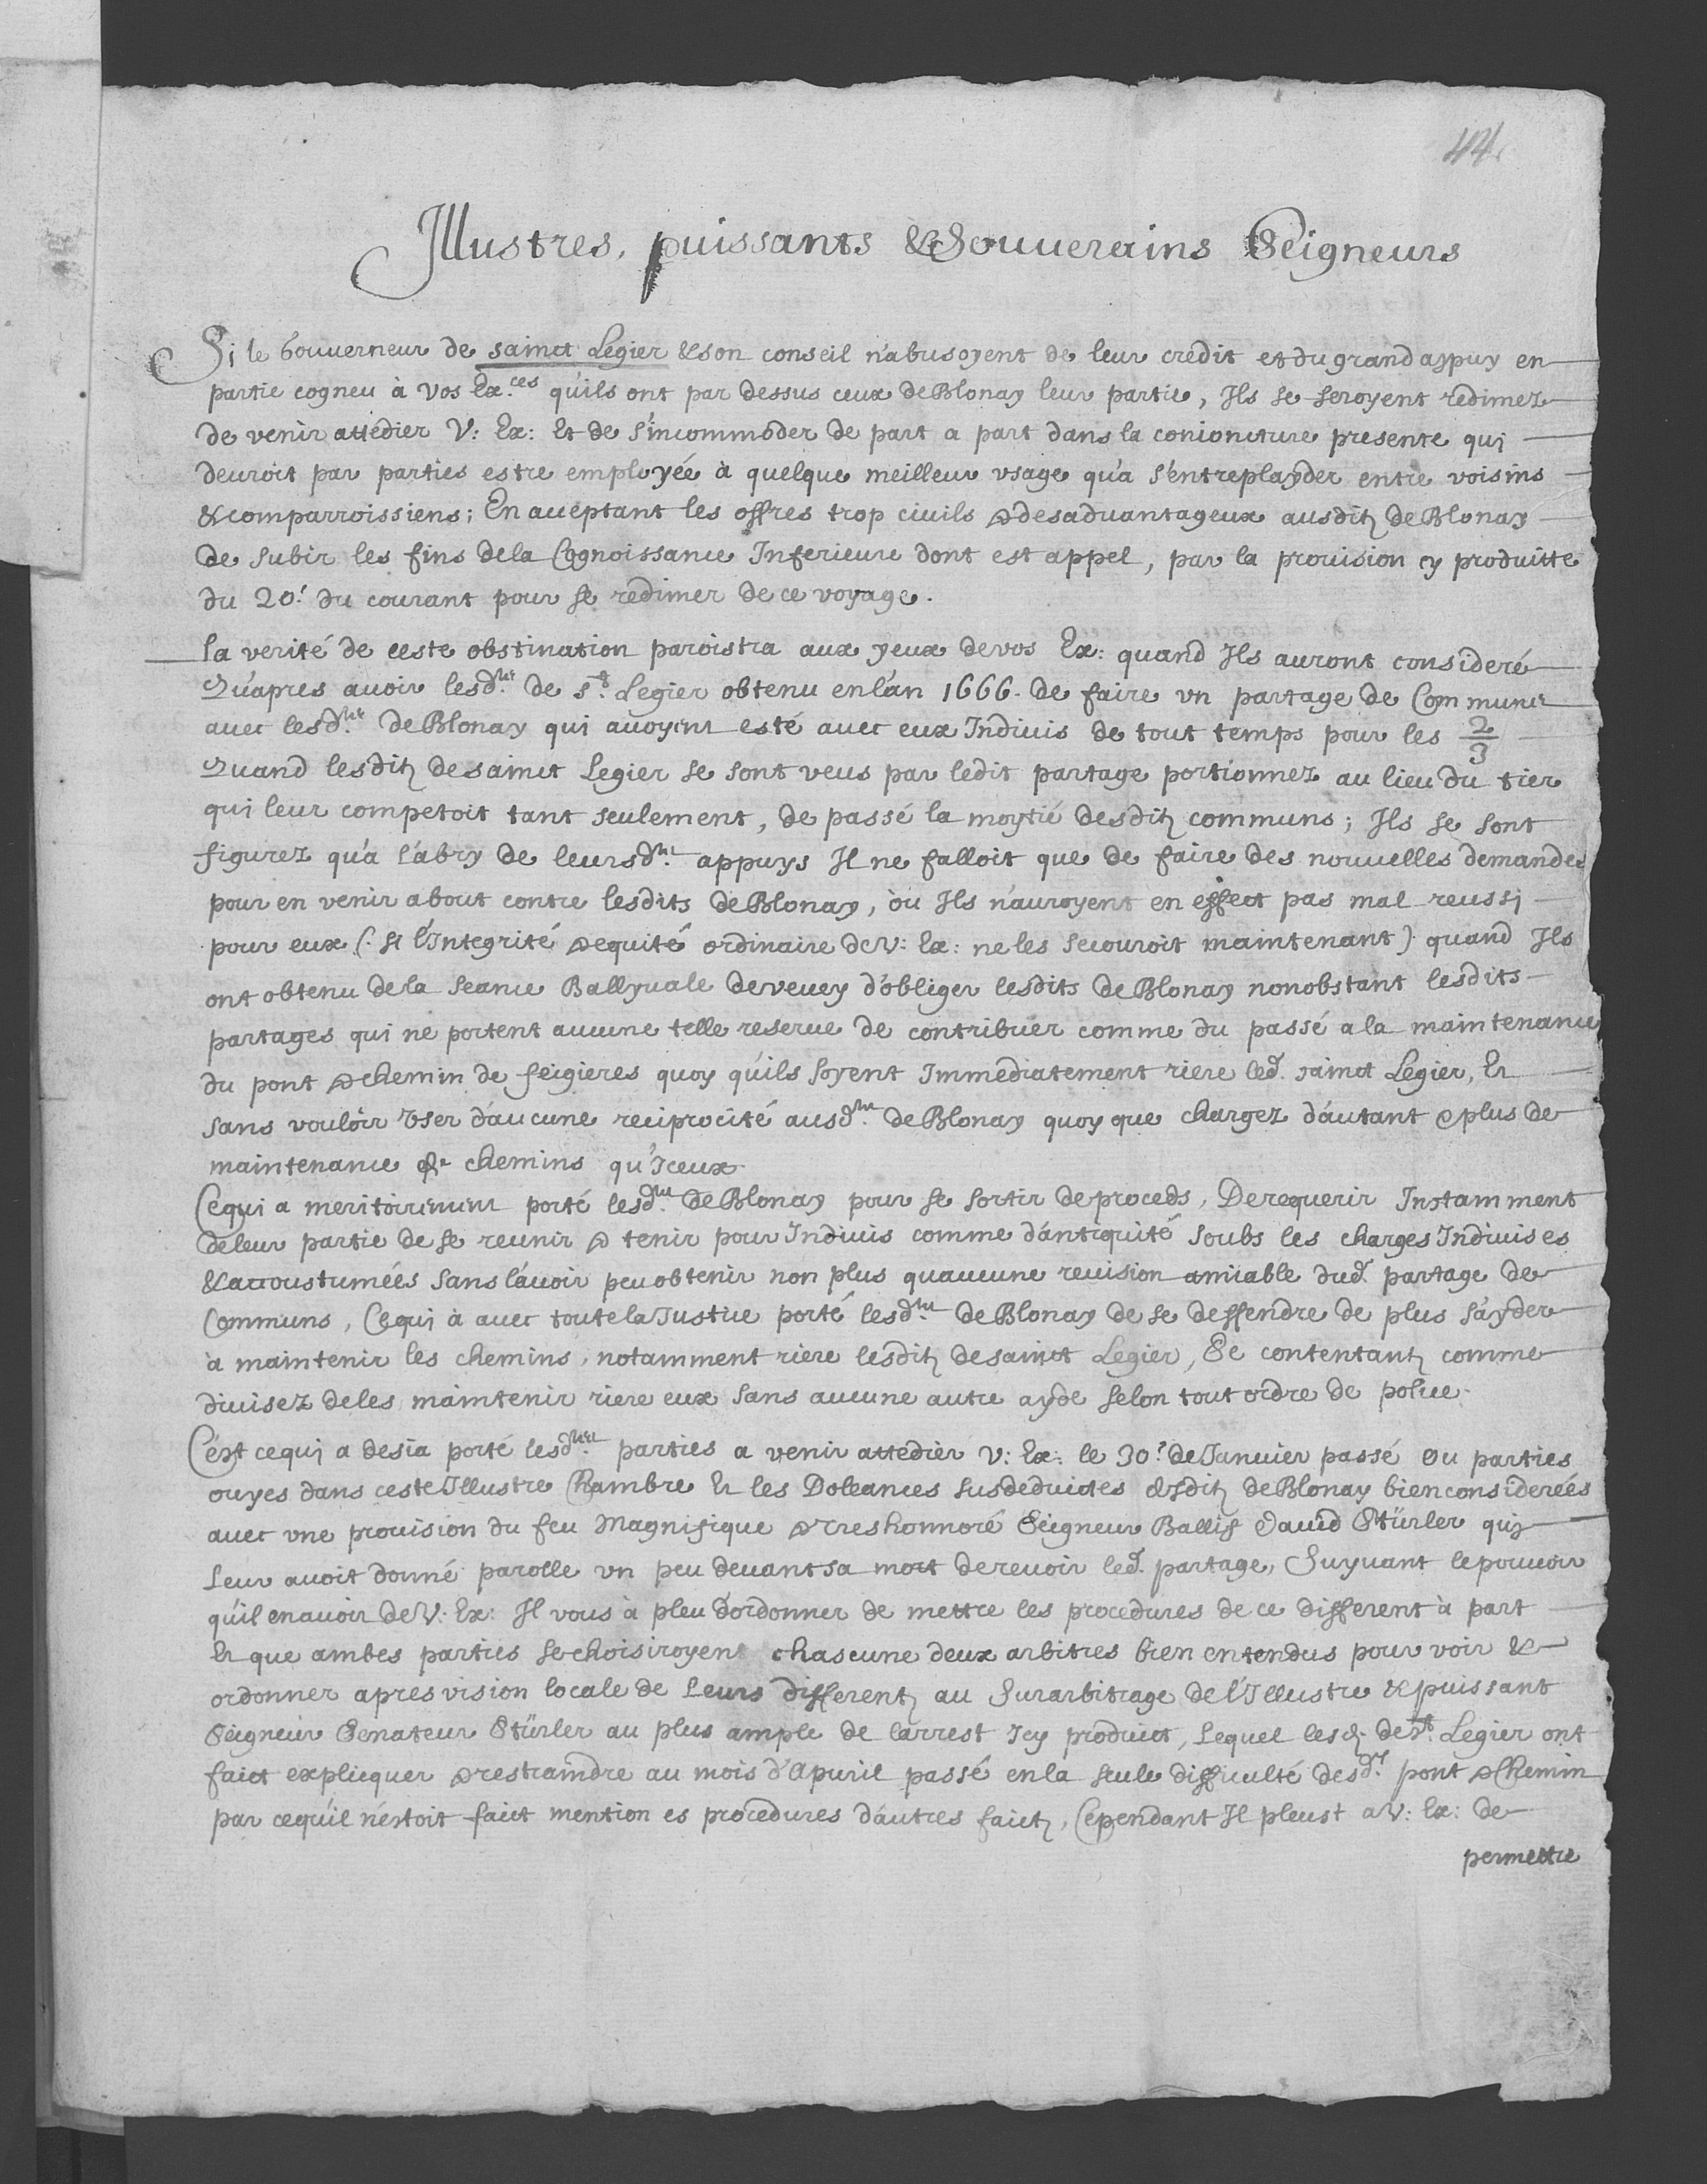 44.
Illustres, puissants & Souuerains Seigneurs
Si le Gouuerneur de sainct Legier & son conseil n'abusoyent de leur credit et du grand appuy en
partie cogneu à Vos Ex.ces qu'ils ont par dessus ceux de Blonay leur partie, Ils se seroyent redimez
de venir attédier V: Ex: Et de s'incommoder de part a part dans la conioncture presente qui
deuroit par parties estre employée à quelque meilleur vsage qu'a s'entreplayder entre voisins
& comparroissiens; En acceptant les offres trop civils & desaduantageux ausditz de Blonay
de subir les fins de la Cognoissance Inferieure dont est appel, par la prouision cy produitte
du 20.e du courant pour se redimer de ce voyage.
La verité de ceste obstination paroistra aux yeux de vos Ex: quand Ils auront consideré
Qu'apres auoir lesd.ts de s.t Legier obtenu en l'an 1666. de faire vn partage de Communs
auec lesd.ts de Blonay qui auoyent esté auec eux Indiuis de tout temps pour les 2/3
Quand lesditz de sainct Legier se sont veus par ledit partage portionnez au lieu du tier
qui leur competoit tant seulement, de passé la moytié desditz communs; Ils se sont
figurez qu'a l'abry de leursd.ts appuys Il ne falloit que de faire des nouuelles demandes
pour en venir a bout contre lesdits de Blonay, où Ils n'auroyent en effect pas mal reussi
pour eux (: si l'Integrité & equité ordinaire de V: Ex: ne les secouroit maintenant) quand Ils
ont obtenu de la seance Ballyuale de veuey d'obliger lesdits de Blonay nonobstant lesdits
partages qui ne portent aucune telle reserue de contribuer comme du passé a la maintenance
du pont & chemin de feigieres quoy qu'ils soyent Immediatement riere led. sainct Legier, Et
sans vouloir vser d'aucune reciprocité ausd.ts de Blonay quoy que chargez d'autant & plus de
maintenance de chemins qu'Iceux.
Ce qui a meritoirement porté lesd.ts de Blonay pour se sortir de proceds, De requerir Instamment
de leur partie de se reunir & tenir pour Indiuis comme d'antiquité soubs les charges Indiuises
& accoustumées sans l'auoir peu obtenir non plus qu'aucune reuision amiable dud. partage de
Communs, Ce qui à auec toute la Iustice porté lesd.ts de Blonay de se deffendre de plus s'ayder
à maintenir les chemins, notamment riere lesditz de sainct Legier, Se contentantz comme
diuisez de les maintenir riere eux sans aucune autre ayde selon tout ordre de police.
C'est ce qui a desia porté lesd.tes parties a venir attedier V: Ex: le 30.e de Ianuier passé ou parties
ouyes dans ceste Illustre Chambre Et les Doleances susdeduictes desditz de Blonay bien considerées
auec vne prouision du feu Magnifique & Treshonnoré Seigneur Ballif Dauid Stürler qui
leur auoit donné parolle vn peu deuant sa mort de reuoir led. partage, Suyuant le pouuoir
qu'il en auoir de V: Ex: Il vous à pleu d'ordonner de mettre les procedures de ce different à part
Et que ambes parties se choisiroyent chascune deux arbitres bien entendus pour voir &
ordonner apres vision locale de Leurs differentz au Surarbitrage de l'Illustre & puissant
Seigneur Senateur Stürler au plus ample de l'arrest Icy produict, Lequel lesd. de s.t Legier ont
faict explicquer & restraindre au mois d'Apuril passé en la seule difficulté desd.ts pont & Chemin
par ce qu'il n'estoit faict mention es procedures d'autres faictz, Cependant Il pleust a V: Ex: de
permettre